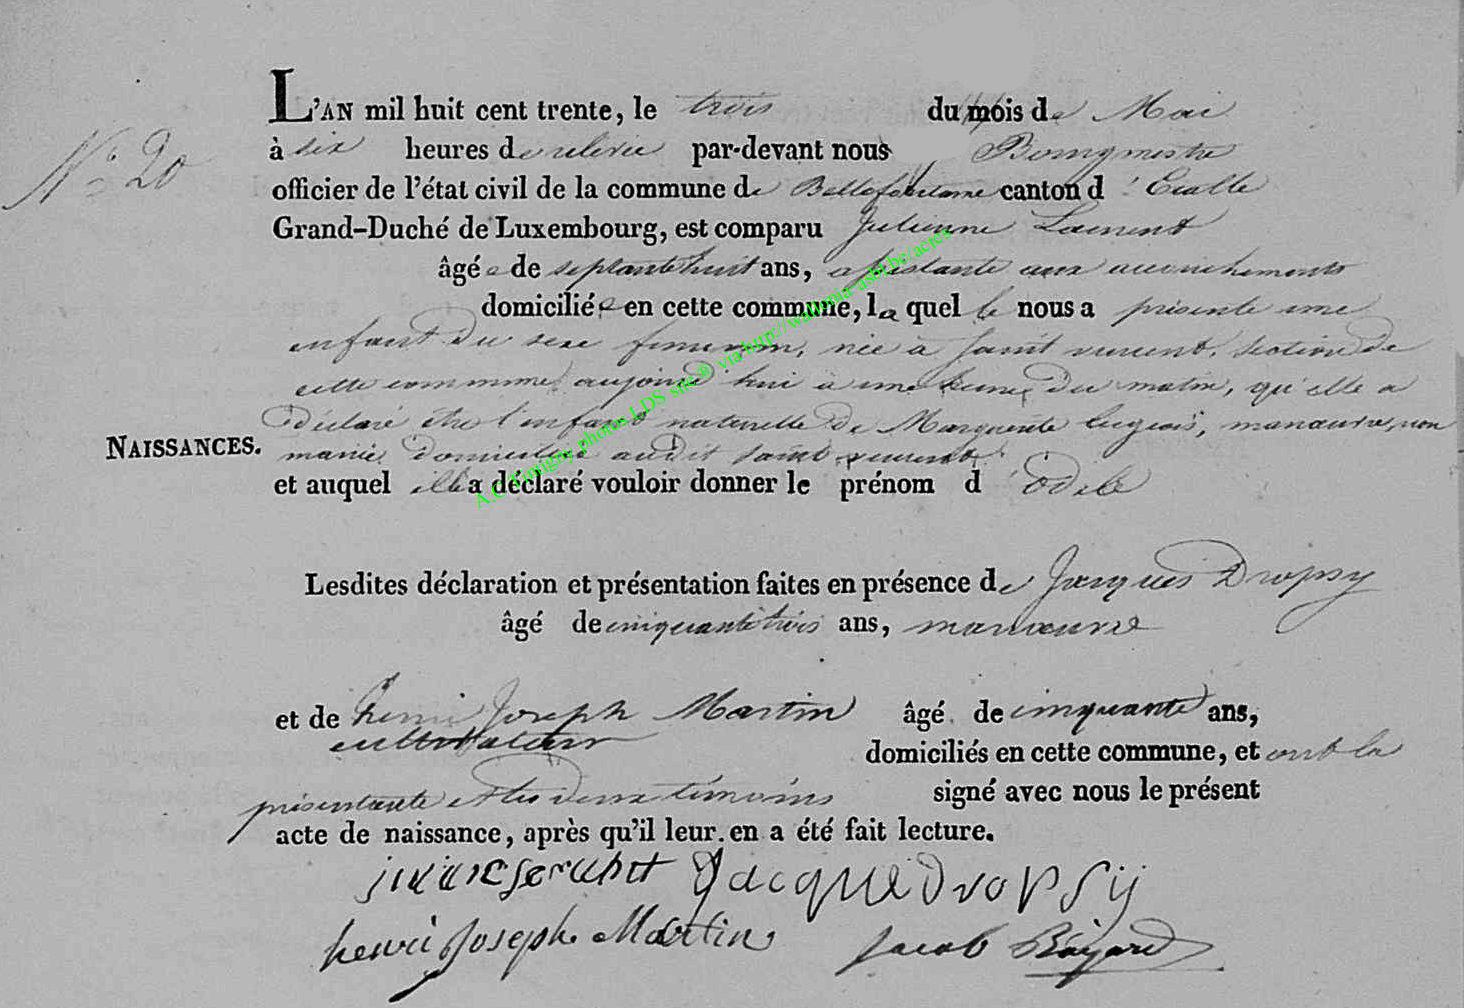 L'AN mil huit cent trente, le trois du mois de Mai
N° 20
à six heures de relevée par-devant nous Bourgmestre
officier de l'état civil de la commune de Bellefontaine canton d'Etalle
Grand-Duché de Luxembourg, est comparu Julienne Laurent
âgée de septantehuit ans, assistante aux accouchements
domiciliée en cette commune, laquelle nous a présenté une
enfant du sexe feminin, née à Saint vincent, section de
cette commune, aujourd'hui à une heure du matin, qu'elle a
déclaré être l'enfant naturelle de Marguerite, manœuvre, non
NAISSANCES.
mariée domiciliée audit Saint vincent,
et auquel elle a déclaré vouloir donner le prénom d'Odile
Lesdites déclaration et présentation faites en présence de Jacques Dropsy
âgé de cinquante trois ans, manœuvre
et de henri Joseph Martin âgé de cinquante ans,
cultivateur
domiciliés en cette commune, et ont la
présentante et les deux témoins signé avec nous le présent
acte de naissance, après qu'il leur en a été fait lecture.
Jacque Dropsy
henri Joseph Martin Jacob
A.C. Tintigny photos LDS site® via http://wallonia-asbl.be/actes